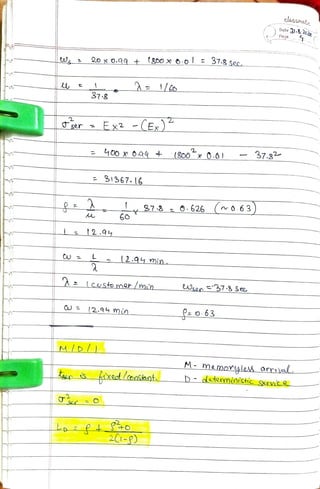 classmate
Date 31.8.2020
Page 9
Ws = 20 x 0.99 + 1800 x 0.01 = 37.8 sec.
u = 1/37.8 λ = 1/60
σ²ser = Ex2 - (Ex)²
= 400 x 0.99 + 1800² x 0.01 - 37.8²
= 31367.16
ρ = λ/u = 1/60 x 37.8 = 0.626 (~0.63)
L = 12.94
ω = L/λ = 12.94 min.
λ = 1 customer/min Wser = 37.8 sec
ω = 12.94 min ρ = 0.63
M/D/1
M - memoryless arrival.
tser is fixed/constant. D - deterministic service
σ²ser = 0
LD = ρ + ρ²+0/2(1-ρ)